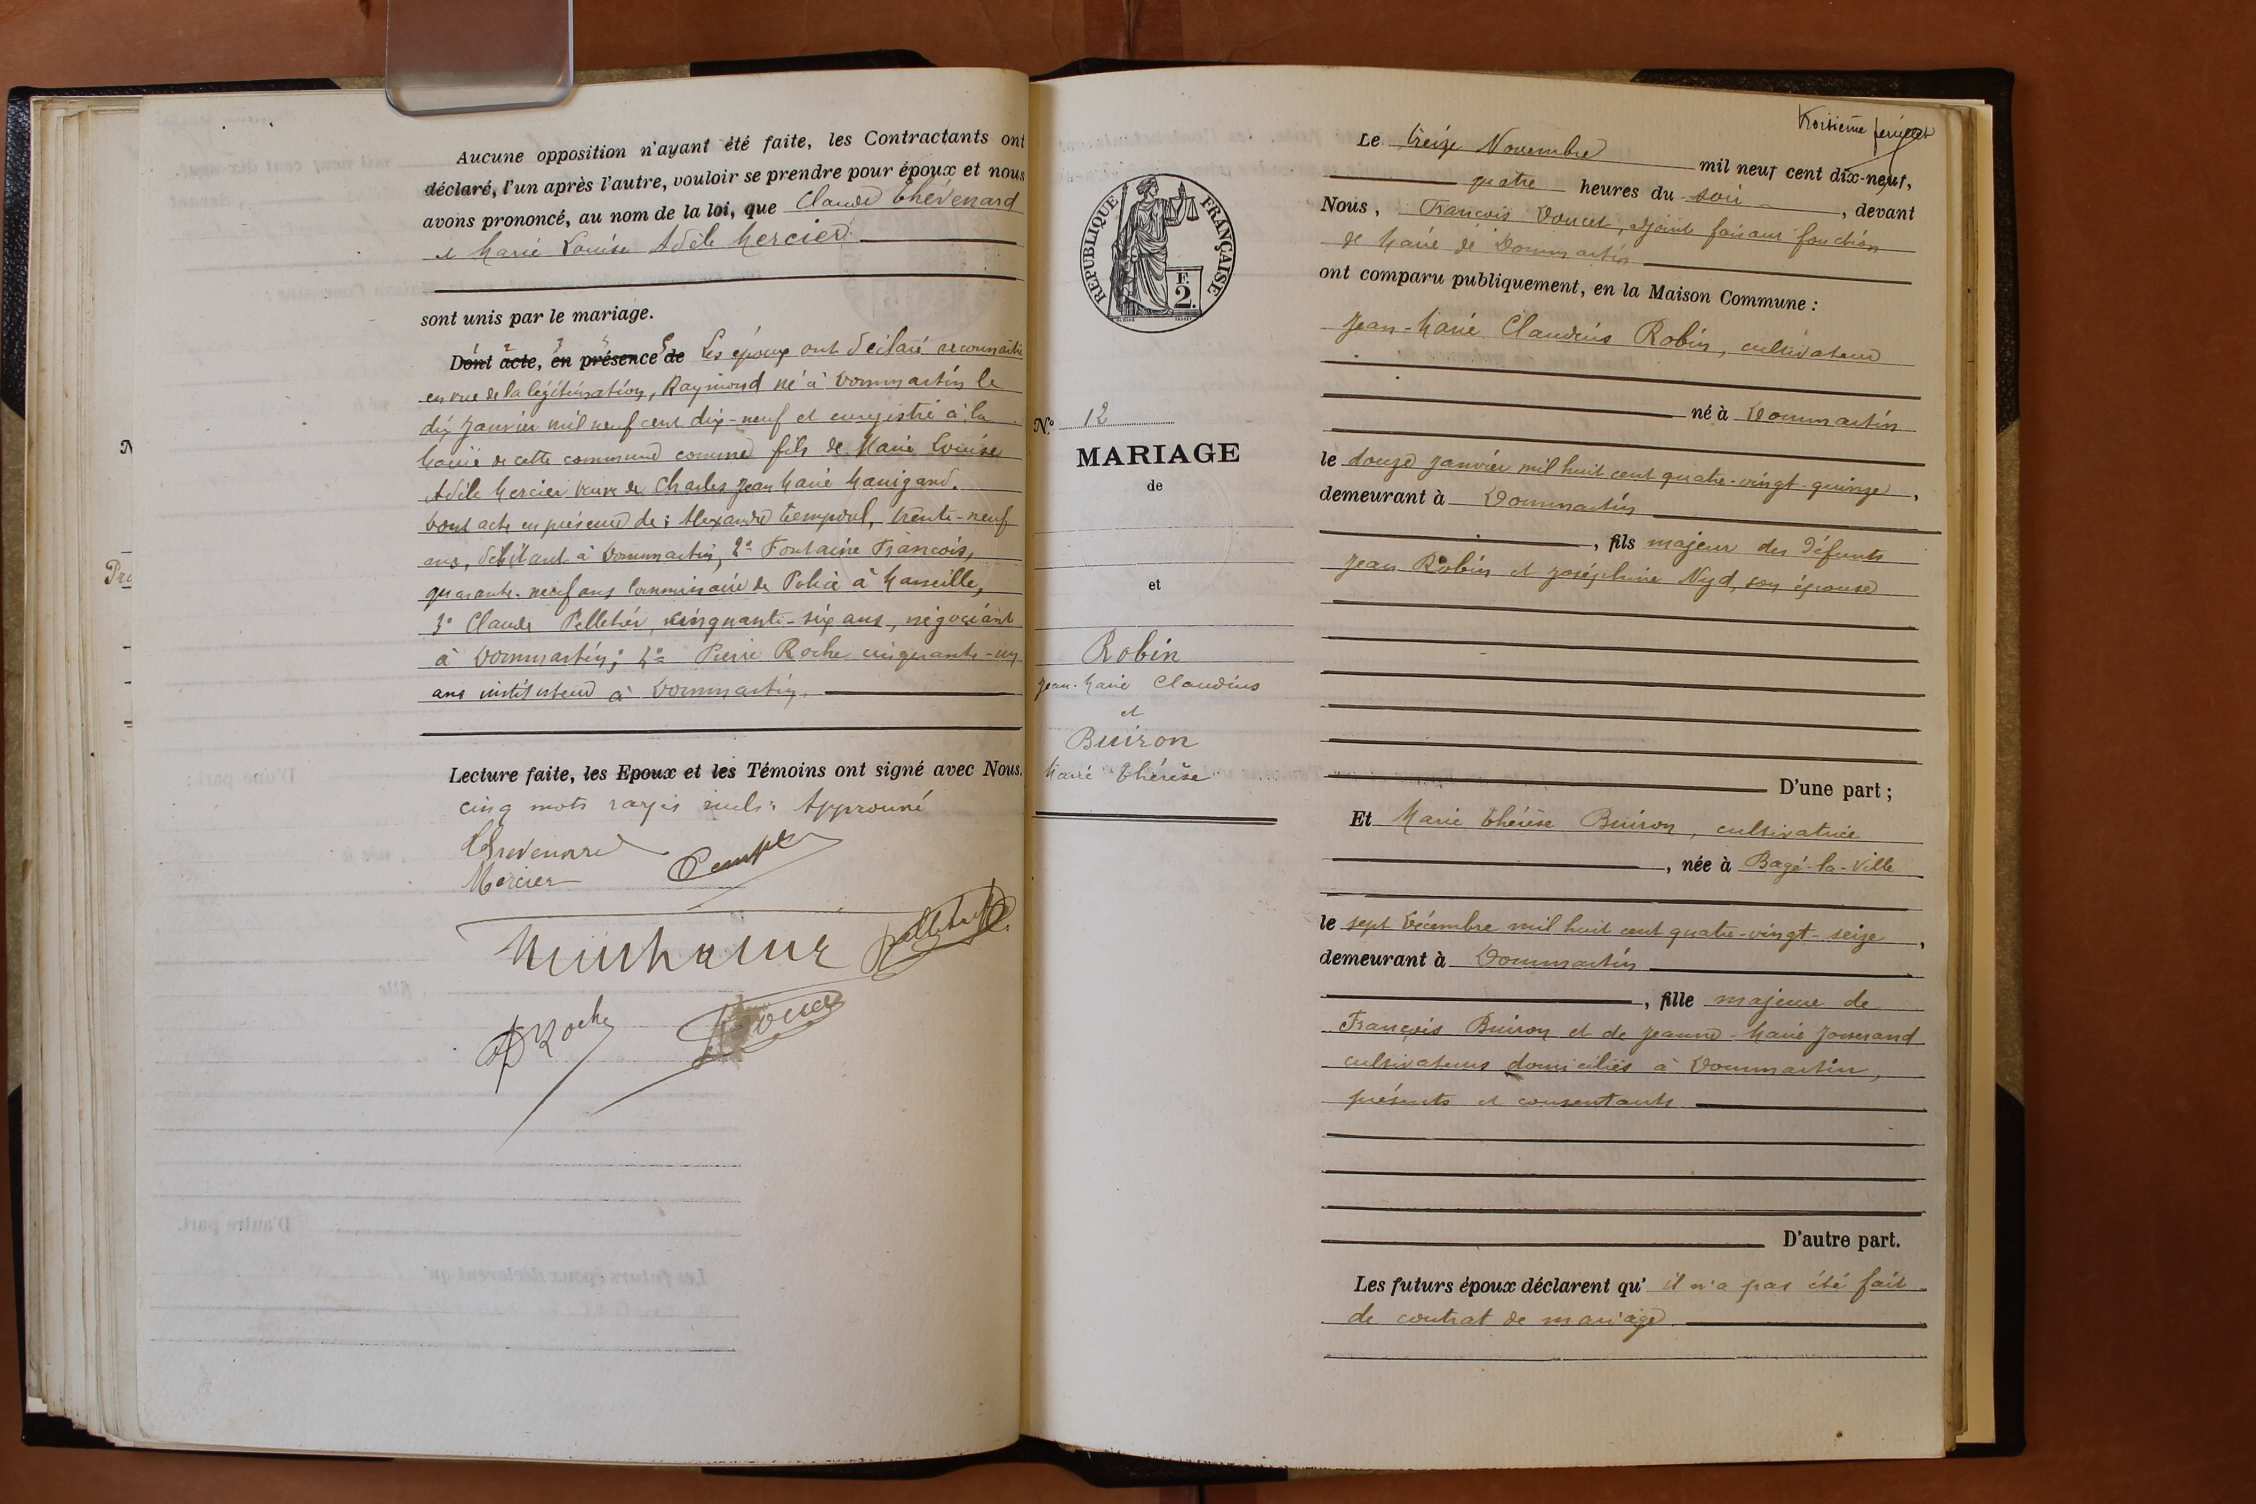 Aucune opposition n'ayant été faite, les Contractants ont
déclaré, l'un après l'autre, vouloir se prendre pour époux et nous
avons prononcé, au nom de la loi, que Claude Thévenard
et Marie Louise Adèle Mercier
sont unis par le mariage.
Dont acte, en présence de Les époux ont déclaré reconnaitre
en vue de la légitimation, Raymond né à Dommartin le
dix Janvier mil neuf cent dix-neuf et enregistré à la
Mairie de cette commune comme fils de Marie Louise
Adèle Mercier veuve de Charles Jean Marie Manigand.
Dont acte en présence de : Alexandre Temporal, trente-neuf
ans, débitant à Dommartin, 2º Fontaine François,
quarante-neuf ans Commissaire de Police à Marseille,
3º Claude Pelletier, cinquante-six ans, négociant
à Dommartin; 4º Pierre Roche cinquante-un
ans instituteur à Dommartin.
Lecture faite, les Epoux et les Témoins ont signé avec Nous.
cinq mots rayés nuls. Approuvé
Thevenard
Mercier
P Roche
Doucet
Troisième feuillet
RÉPUBLIQUE FRANÇAISE
F. 2.
N.º 12
MARIAGE
de
et
Robin
Jean-Marie Claudius
et
Buiron
Marie Thérèse
Le treize Novembre mil neuf cent dix-neuf,
quatre heures du soir, devant
Nous, François Doucet, adjoint faisant fonction
de Maire de Dommartin
ont comparu publiquement, en la Maison Commune :
Jean-Marie Claudius Robin, cultivateur
né à Dommartin
le douze Janvier mil huit cent quatre-vingt-quinze,
demeurant à Dommartin
, fils majeur des défunts
Jean Robin et Joséphine Nyd, son épouse
D'une part ;
Et Marie Thérèse Buiron, cultivatrice
, née à Bagé-la-Ville
le sept Décembre mil huit cent quatre-vingt-seize,
demeurant à Dommartin
, fille majeure de
François Buiron et de Jeanne-Marie Josserand
cultivateurs domiciliés à Dommartin,
présents et consentants
D'autre part.
Les futurs époux déclarent qu' il n'a pas été fait
de contrat de mariage.